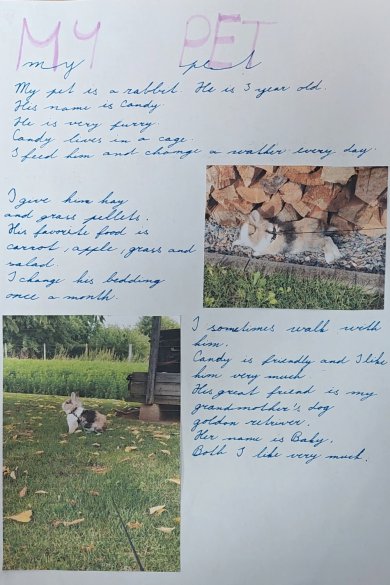 MY PET
my pet
My pet is a rabbit. He is 3 year old.
His name is Candy.
He is very furry.
Candy lives in a cage.
I feed him and change a wather every day.
I give him hay
and grass pellets.
His favorite food is
carrot, apple, grass and
salad.
I change his bedding
once a month.
I sometimes walk with
him.
Candy is friendly and I like
him very much.
His great friend is my
grandmother's dog
goldon retriver.
Her name is Baby.
Both I like very much.